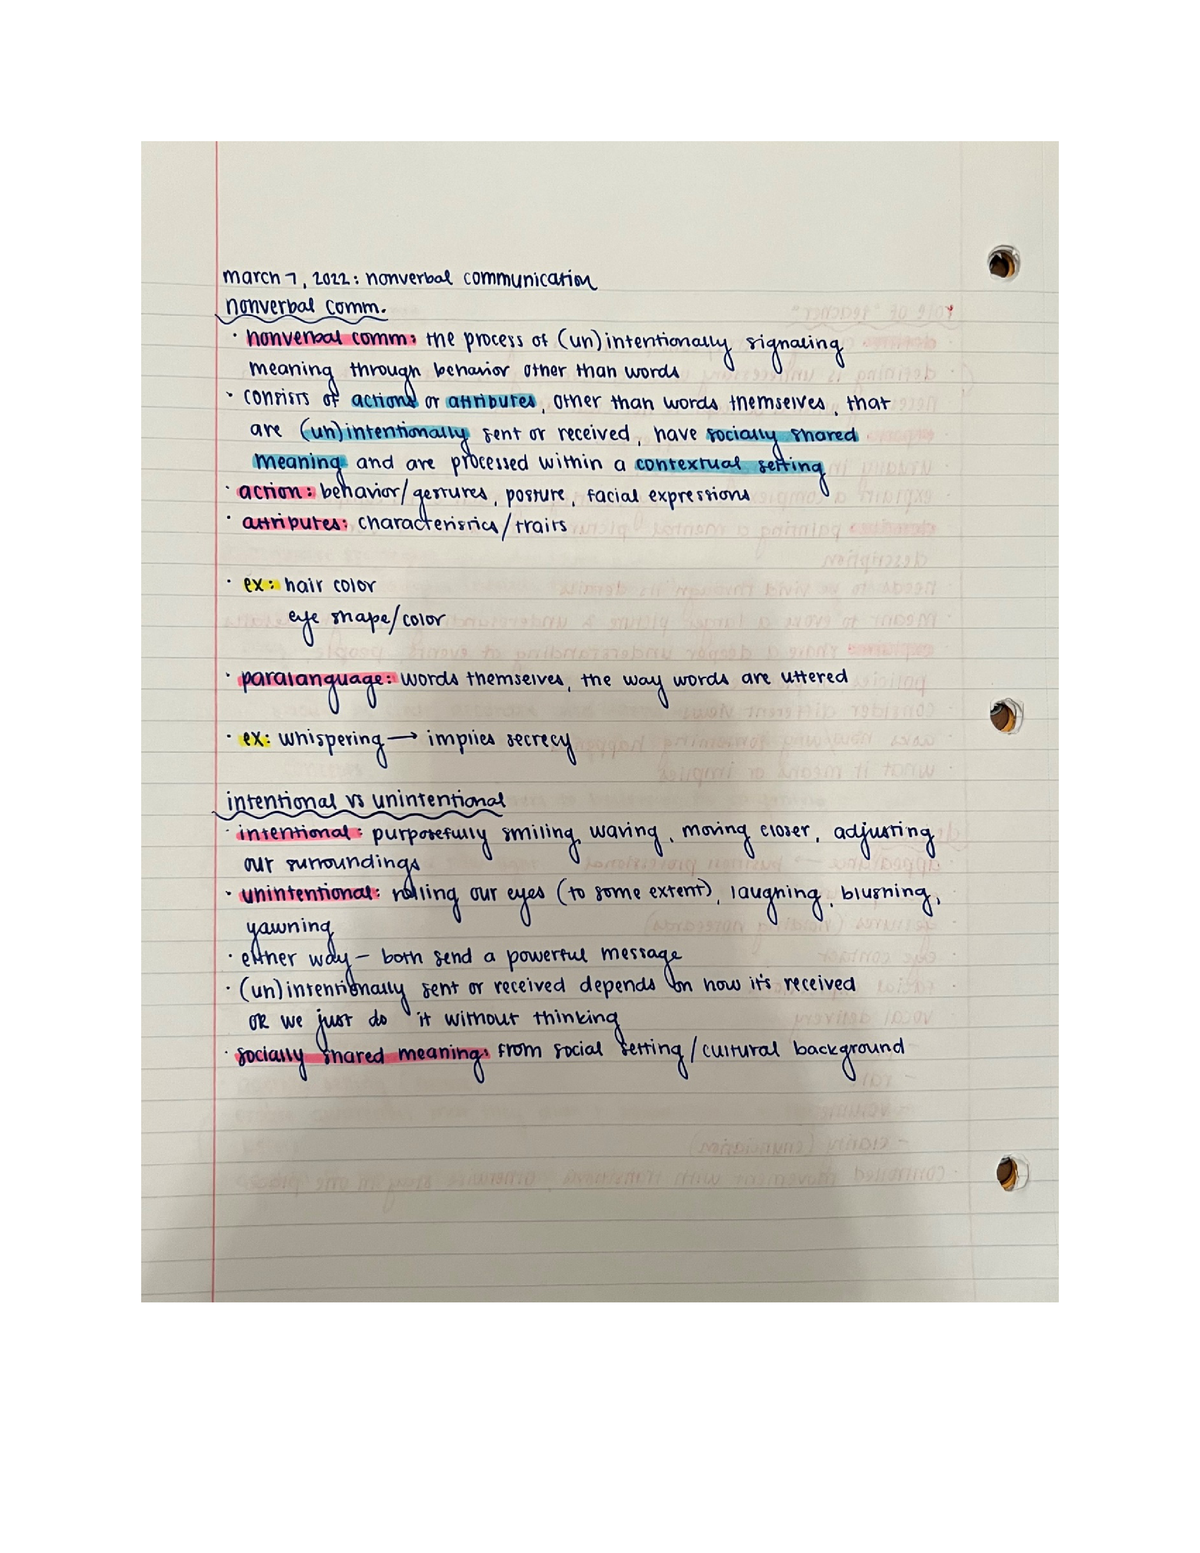 march 7, 2022: nonverbal communication
nonverbal comm.
· nonverbal comm: the process of (un)intentionally signaling
meaning through behavior other than words
· consists of actions or attributes, other than words themselves, that
are (un)intentionally sent or received, have socially shared
meaning and are processed within a contextual setting
· action: behavior/gestures, posture, facial expressions
· attributes: characteristics/traits
· ex: hair color
eye shape/color
· paralanguage: words themselves, the way words are uttered
· ex: whispering → implies secrecy
intentional vs unintentional
· intentional: purposefully smiling, waving, moving closer, adjusting
our surroundings
· unintentional: rolling our eyes (to some extent), laughing, blushing,
yawning
· either way – both send a powerful message
· (un)intentionally sent or received depends on how it's received
OR we just do it without thinking
· socially shared meaning: from social setting/cultural background